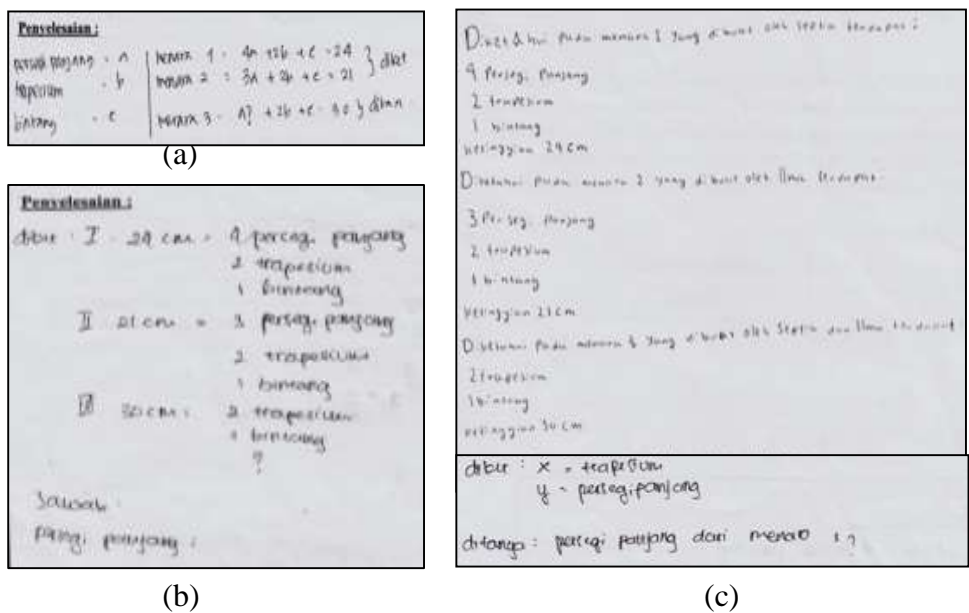 Penyelesaian :
persegi panjang = a | menara 1 = 4a + 2b + c = 24 } diket
trapesium = b | menara 2 = 3a + 2b + c = 21
bintang = c | menara 3 = a? + 2b + c = 30 }
(a)
Penyelesaian :
diket : I 24 cm = 4 persegi panjang
2 trapesium
1 bintang
II 21 cm = 3 persegi panjang
2 trapesium
1 bintang
III 30 cm = 2 trapesium
1 bintang
?
Jawab :
persegi panjang :
(b)
Diketahui Pada menara 1 yang dibuat oleh Septia terdapat :
4 Persegi Panjang
2 trapesium
1 bintang
ketinggian 24 cm
Diketahui Pada menara 2 yang dibuat oleh Ilma terdapat :
3 Persegi Panjang
2 trapesium
1 bintang
ketinggian 21 cm
Diketahui Pada menara 3 yang dibuat oleh Septia dan Ilma terdapat
2 trapesium
1 bintang
ketinggian 30 cm
diket : x = trapesium
y = persegi panjang
ditanya : persegi panjang dari menara
(c)